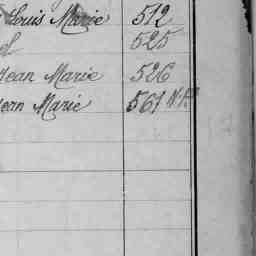 Louis Marie 512
525
Jean Marie 526
Jean Marie 561